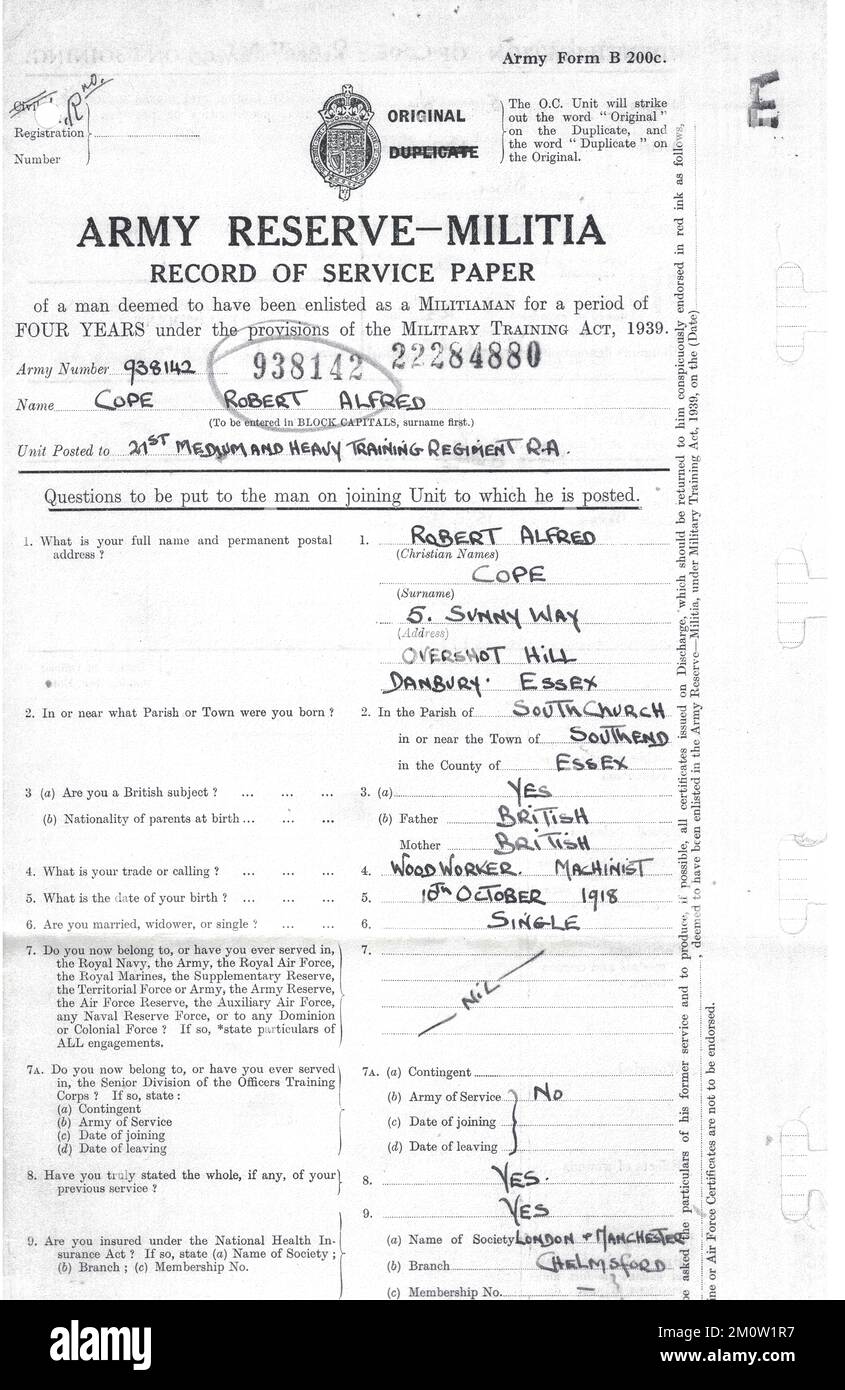 Army Form B 200c.
Civil
R no.
Registration
Number
ORIGINAL
DUPLICATE
The O.C. Unit will strike
out the word "Original"
on the Duplicate, and
the word "Duplicate" on
the Original.
ARMY RESERVE—MILITIA
RECORD OF SERVICE PAPER
of a man deemed to have been enlisted as a MILITIAMAN for a period of
FOUR YEARS under the provisions of the MILITARY TRAINING ACT, 1939.
Army Number 938142 938142 22284880
Name COPE ROBERT ALFRED
(To be entered in BLOCK CAPITALS, surname first.)
Unit Posted to 21ST MEDIUM AND HEAVY TRAINING REGIMENT R.A.
Questions to be put to the man on joining Unit to which he is posted.
1. What is your full name and permanent postal
address ?
1. ROBERT ALFRED
(Christian Names)
COPE
(Surname)
5. SUNNY WAY
(Address)
OVERSHOT HILL
DANBURY. ESSEX
2. In or near what Parish or Town were you born ?
2. In the Parish of SOUTHCHURCH
in or near the Town of SOUTHEND
in the County of ESSEX
3 (a) Are you a British subject ? ... ... ...
3. (a) YES
(b) Nationality of parents at birth ... ... ...
(b) Father BRITISH
Mother BRITISH
4. What is your trade or calling ? ... ... ...
4. WOOD WORKER. MACHINIST
5. What is the date of your birth ? ... ... ...
5. 10th OCTOBER 1918
6. Are you married, widower, or single ? ... ...
6. SINGLE
7. Do you now belong to, or have you ever served in,
the Royal Navy, the Army, the Royal Air Force,
the Royal Marines, the Supplementary Reserve,
the Territorial Force or Army, the Army Reserve,
the Air Force Reserve, the Auxiliary Air Force,
any Naval Reserve Force, or to any Dominion
or Colonial Force ? If so, *state particulars of
ALL engagements.
7.
NIL
7A. Do you now belong to, or have you ever served
in, the Senior Division of the Officers Training
Corps ? If so, state :
(a) Contingent
(b) Army of Service
(c) Date of joining
(d) Date of leaving
7A. (a) Contingent
(b) Army of Service NO
(c) Date of joining
(d) Date of leaving
8. Have you truly stated the whole, if any, of your
previous service ?
8. YES.
9. Are you insured under the National Health In-
surance Act ? If so, state (a) Name of Society ;
(b) Branch ; (c) Membership No.
9. YES
(a) Name of Society LONDON & MANCHESTER
(b) Branch CHELMSFORD
(c) Membership No. —
be asked the particulars of his former service and to produce, if possible, all certificates issued on Discharge, which should be returned to him conspicuously endorsed in red ink as follows,
, deemed to have been enlisted in the Army Reserve—Militia, under Military Training Act, 1939, on the (Date)
ine or Air Force Certificates are not to be endorsed.
alamy
Image ID: 2M0W1R7
www.alamy.com